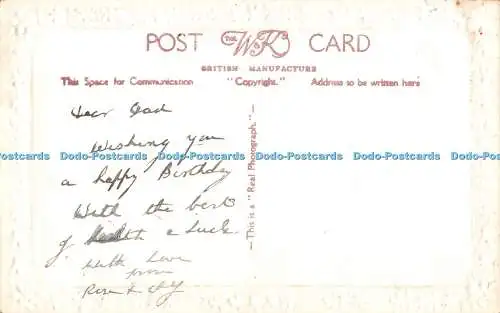 POST The W & K CARD
BRITISH MANUFACTURE
This Space for Communication "Copyright." Address to be written here
Dear Dad
Wishing you
Dodo-Postcards Dodo-Postcards Dodo-Postcards Dodo-Postcards Dodo-Postcards Dodo-Postcards
a happy Birthday
With the best
of Health & Luck.
With Love
from
Rose &
—This is a "Real Photograph."—